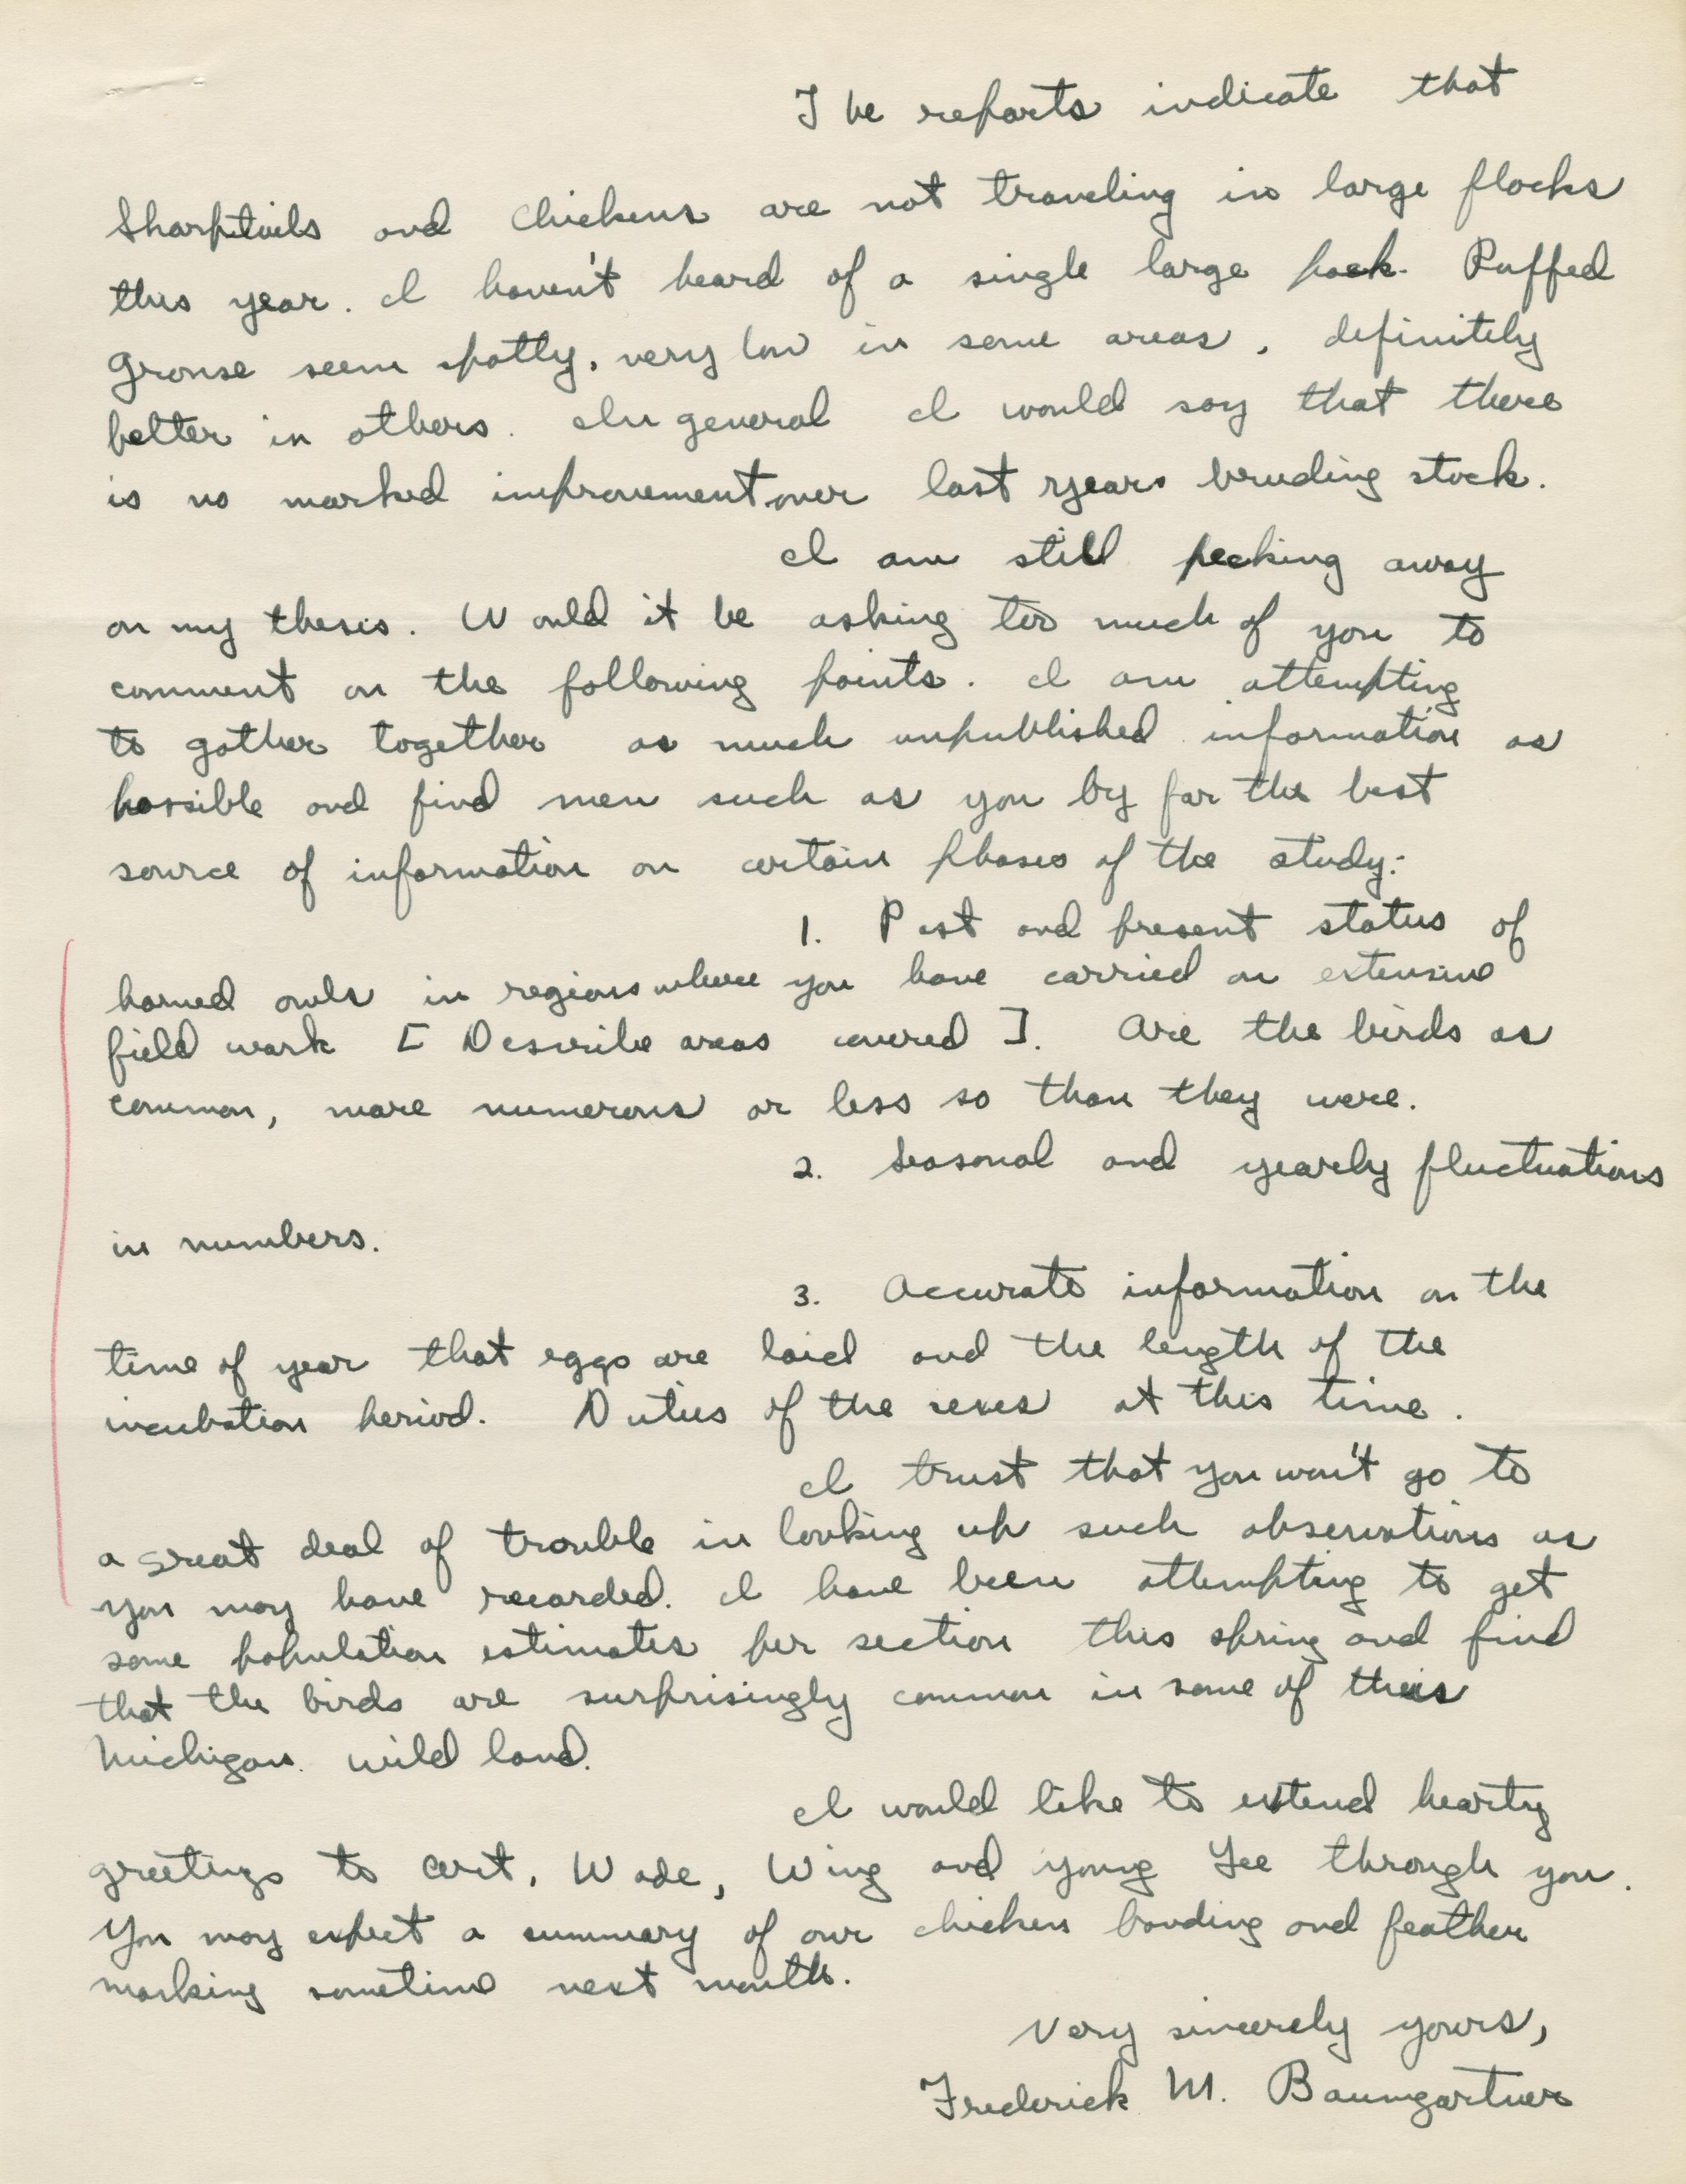 The reports indicate that
Sharptails and Chickens are not traveling in large flocks
this year. I haven't heard of a single large pack. Ruffed
Grouse seem spotty, very low in some areas, definitely
better in others. In general I would say that there
is no marked improvement over last years breeding stock.
I am still pecking away
on my thesis. Would it be asking too much of you to
comment on the following points. I am attempting
to gather together as much unpublished information as
possible and find men such as you by far the best
source of information on certain phases of the study:
1. Past and present status of
horned owls in regions where you have carried on extensive
field work [Describe areas covered]. Are the birds as
common, more numerous or less so than they were.
2. Seasonal and yearly fluctuations
in numbers.
3. Accurate information on the
time of year that eggs are laid and the length of the
incubation period. Duties of the sexes at this time.
I trust that you won't go to
a great deal of trouble in looking up such observations as
you may have recorded. I have been attempting to get
some population estimates per section this spring and find
that the birds are surprisingly common in some of this
Michigan wild land.
I would like to extend hearty
greetings to Art, Wade, Wing and young Lee through you.
You may expect a summary of our chicken banding and feather
marking sometime next month.
Very sincerely yours,
Frederick M. Baumgartner